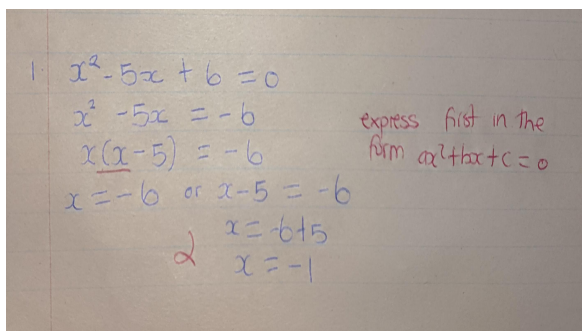 1. x² - 5x + 6 = 0
x² - 5x = -6
x(x-5) = -6
x = -6 or x-5 = -6
x = -6+5
x = -1
express first in the
form ax²+bx+c=0